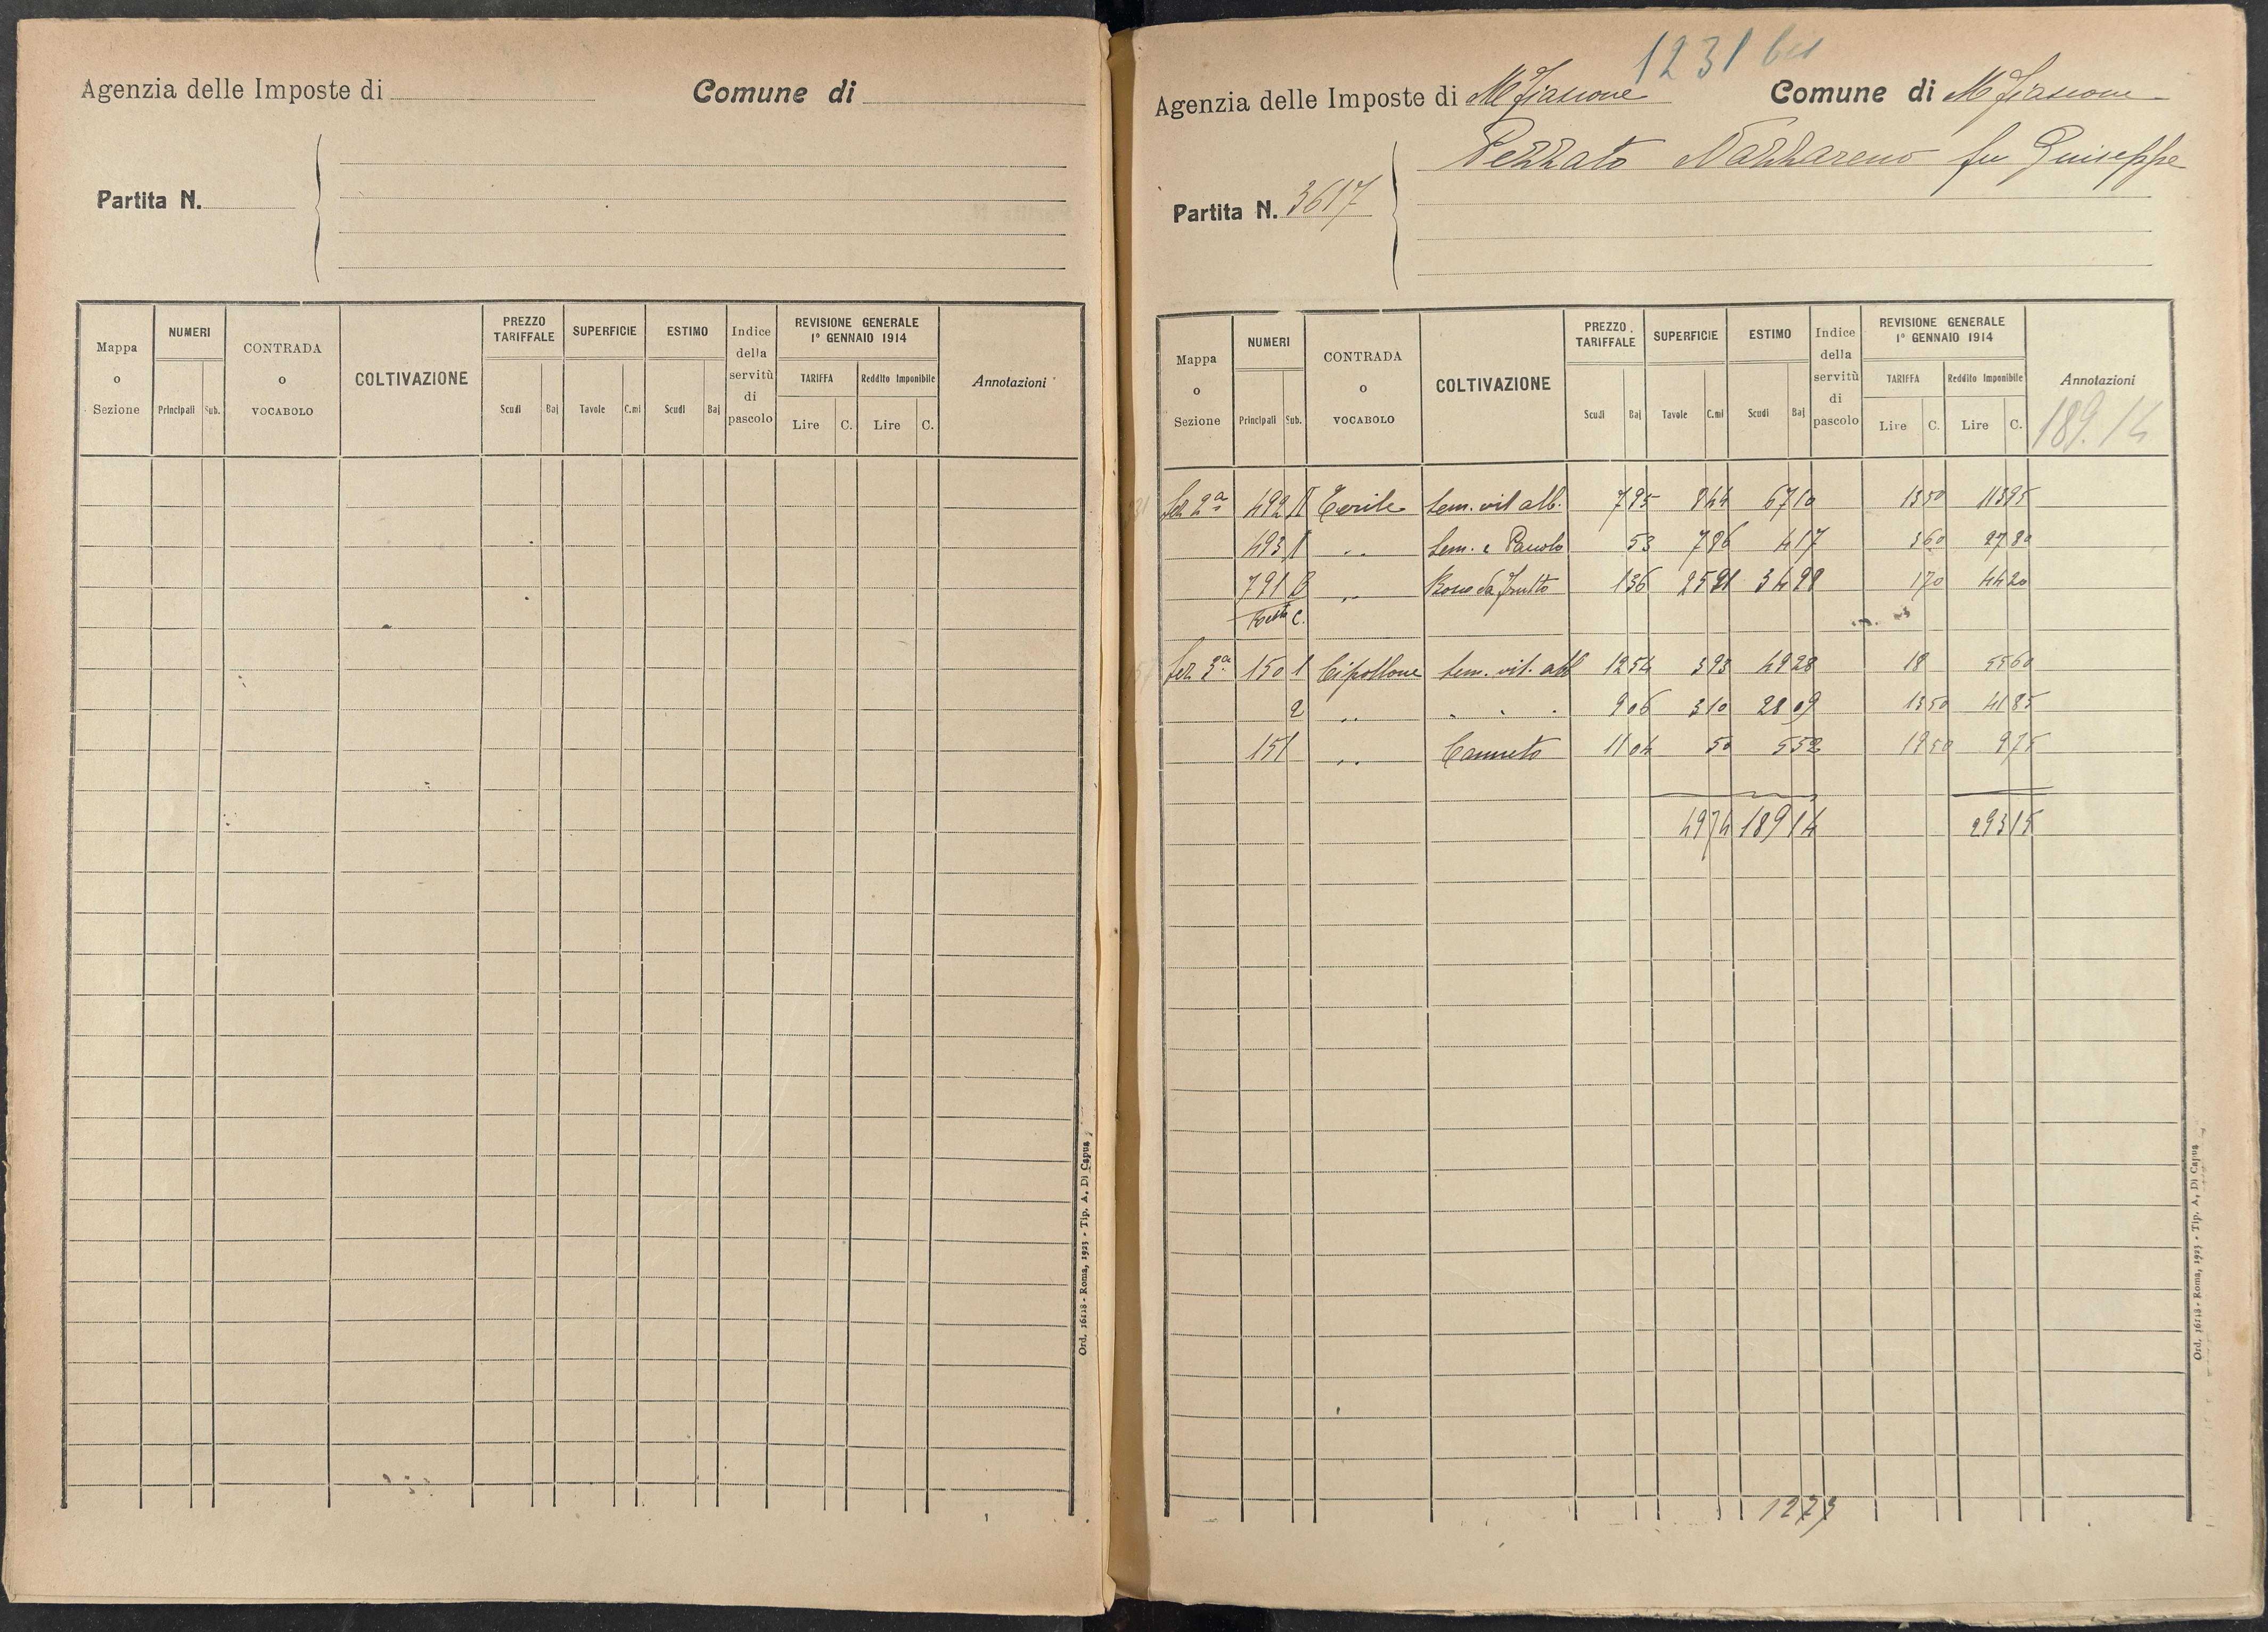 Agenzia delle Imposte di
Comune di
Partita N.
Mappa o Sezione
NUMERI
Principali
Sub.
CONTRADA o VOCABOLO
COLTIVAZIONE
PREZZO TARIFFALE
Scudi
Baj
SUPERFICIE
Tavole
C.mi
ESTIMO
Scudi
Baj
Indice della servitù di pascolo
REVISIONE GENERALE 1° GENNAIO 1914
TARIFFA
Lire
C.
Reddito Imponibile
Lire
C.
Annotazioni
Ord. 16118 - Roma, 1923 - Tip. A. Di Capua
1231 bis
Agenzia delle Imposte di M Fiascone
Comune di M Fiascone
Pezzato Nazzareno fu Giuseppe
Partita N. 3617
Mappa o Sezione
NUMERI
Principali
Sub.
CONTRADA o VOCABOLO
COLTIVAZIONE
PREZZO TARIFFALE
Scudi
Baj
SUPERFICIE
Tavole
C.mi
ESTIMO
Scudi
Baj
Indice della servitù di pascolo
REVISIONE GENERALE 1° GENNAIO 1914
TARIFFA
Lire
C.
Reddito Imponibile
Lire
C.
Annotazioni
189.14
Sez. 2ª 492 Cerile Sem. vit alb. 7 95 8 44 67 10 13 50 113 95
493 " Sem. e Pascolo 53 7 86 4 17 3 60 27 80
791 B " Bosco da frutto 1 36 34 98 1 70 44 20
Resto C.
Sez. 3ª 150 1 Cipollone Sem. vit. alb 12 54 3 93 49 28 18 55 60
2 " " " " 9 06 3 10 28 09 13 50 41 85
151 " Canneto 11 04 50 5 52 19 50 9 75
49 74 189 14 293 15
1273
Ord. 16118 - Roma, 1923 - Tip. A. Di Capua